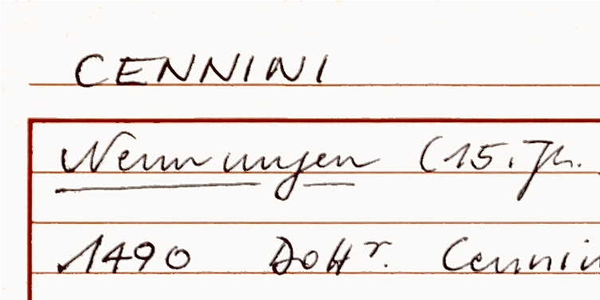 CENNINI
Nennungen (15. Jh.
1490 Dottr. Cennin